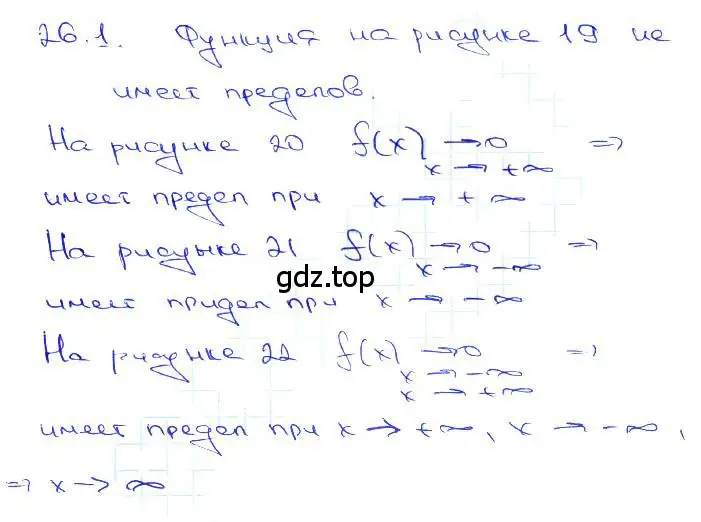 26.1. Функция на рисунке 19 не
имеет пределов.
На рисунке 20 f(x) → 0 =>
x → +∞
имеет предел при x → +∞
На рисунке 21 f(x) → 0 =>
x → -∞
gdz.top
имеет придел при x → -∞
На рисунке 22 f(x) → 0 =>
x → -∞
x → +∞
имеет предел при x → +∞, x → -∞,
=> x → ∞